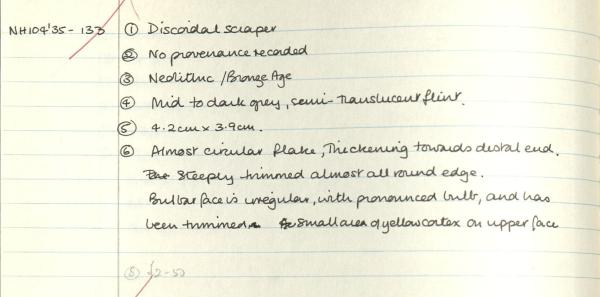 NH104'35-133 ① Discoidal scraper
② No provenance recorded
③ Neolithic / Bronze Age
④ Mid to dark grey, semi-translucent flint.
⑤ 4.2cm x 3.9cm.
⑥ Almost circular flake, thickening towards distal end.
Steeply trimmed almost all round edge.
Bulbar face is irregular, with pronounced bulb, and has
been trimmed. Small area of yellow cortex on upper face